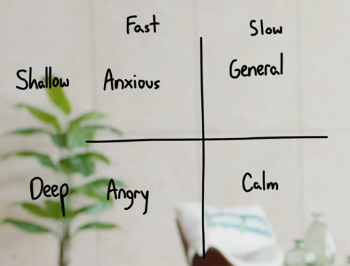 Fast Slow
Shallow Anxious General
Deep Angry Calm